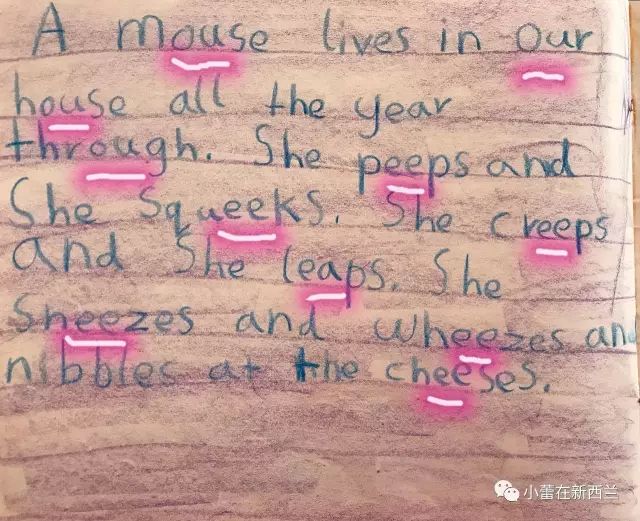 A mouse lives in our
house all the year
through. She peeps and
She Squeeks. She creeps
and She leaps. She
Sneezes and wheezes and
nibbles at the cheeses.
小蕾在新西兰